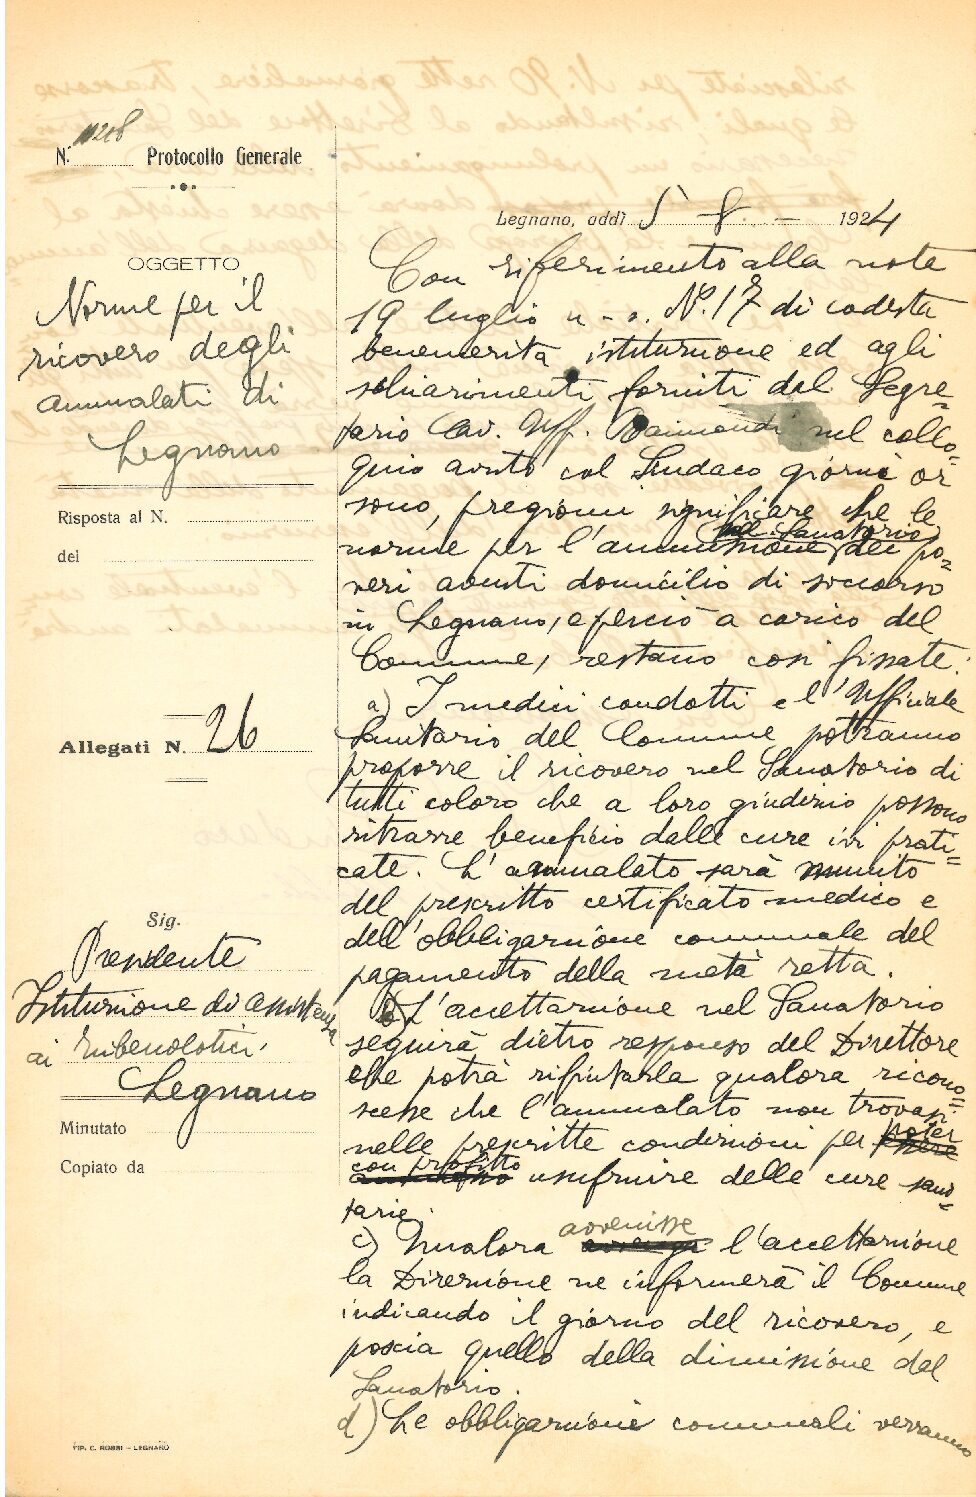 N. 11218 Protocollo Generale
OGGETTO
Norme per il
ricovero degli
ammalati di
Legnano
Risposta al N.
del
Allegati N. 26
Sig.
Presidente
Istituzione di assistenza
ai tubercolotici.
Legnano
Minutato
Copiato da
TIP. C. ROSSI - LEGNANO
Legnano, addì 5 - 8 - 1924
Con riferimento alla nota
19 luglio u-s. Nº. 17 di codesta
benemerita istituzione ed agli
schiarimenti forniti dal Segre=
tario Cav. Uff. Raimondi nel collo=
quio avuto col Sindaco giorni or
sono, pregiomi significare che le
nel Sanatorio
norme per l'ammissione dei po=
veri aventi domicilio di soccorso
in Legnano, e perciò a carico del
Comune, restano così fissate:
a) I medici condotti e l'Ufficiale
Sanitario del Comune potranno
proporre il ricovero nel Sanatorio di
tutti coloro che a loro giudizio possono
ritrarre beneficio dalle cure ivi prati=
cate. L'ammalato sarà munito
del prescritto certificato medico e
dell'obbligazione comunale del
pagamento della metà retta.
b) L'accettazione nel Sanatorio
seguirà dietro responso del Direttore
che potrà rifiutarla qualora ricono=
scesse che l'ammalato non trovasi
poter
nelle prescritte condizioni per essere
con profitto
usufruire delle cure sani=
tarie.
avvenisse
c) Qualora avvenga l'accettazione
la Direzione ne informerà il Comune
indicando il giorno del ricovero, e
poscia quello della dimissione dal
Sanatorio.
d) Le obbligazioni comunali verranno